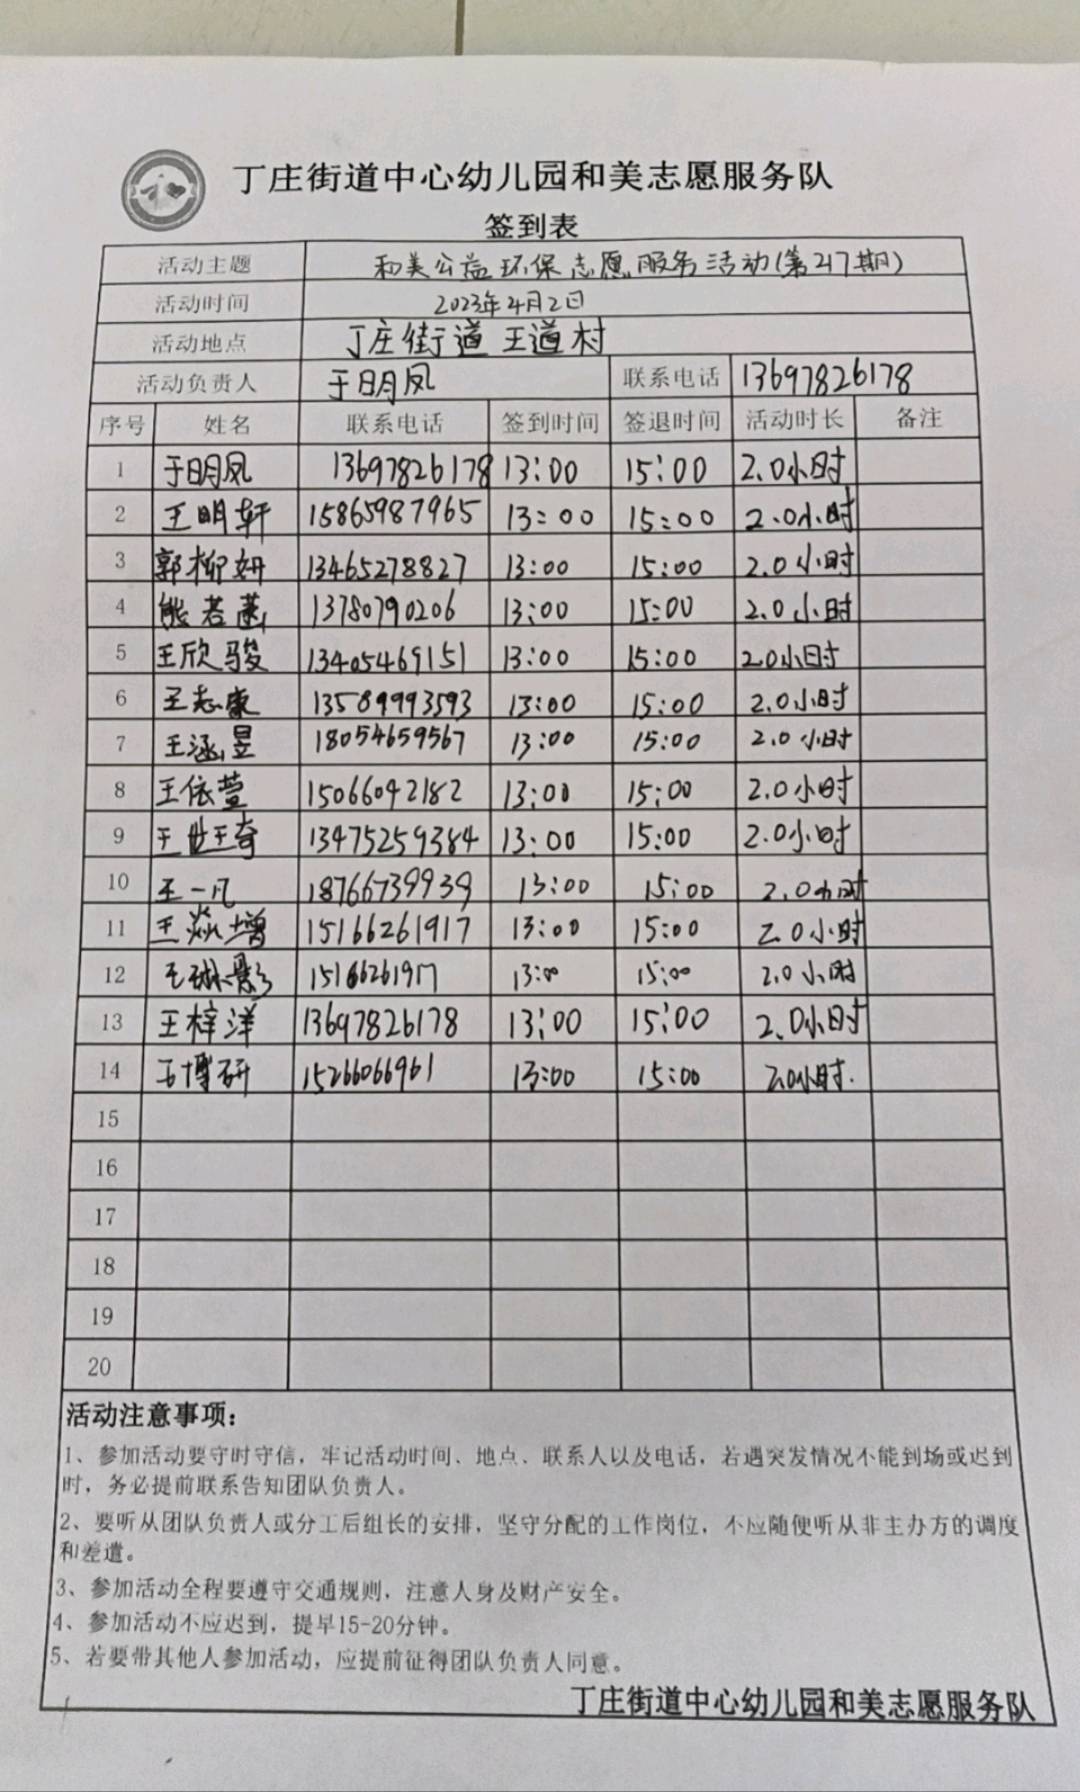 和
丁庄街道中心幼儿园和美志愿服务队
签到表
活动主题 和美公益环保志愿服务活动(第217期)
活动时间 2023年4月2日
活动地点 丁庄街道王道村
活动负责人 于明凤 联系电话 13697826178
序号 姓名 联系电话 签到时间 签退时间 活动时长 备注
1 于明凤 13697826178 13:00 15:00 2.0小时
2 王明轩 15865987965 13:00 15:00 2.0小时
3 郭柳妍 13465278827 13:00 15:00 2.0小时
4 熊若菡 13780790206 13:00 15:00 2.0小时
5 王欣骏 13405469151 13:00 15:00 2.0小时
6 王志康 13589993593 13:00 15:00 2.0小时
7 王涵昱 18054659567 13:00 15:00 2.0小时
8 王依萱 15066042182 13:00 15:00 2.0小时
9 王世琦 13475259384 13:00 15:00 2.0小时
10 王一凡 18766739939 13:00 15:00 2.0小时
11 王焱增 15166261917 13:00 15:00 2.0小时
12 王 影 15166261917 13:00 15:00 2.0小时
13 王梓洋 13697826178 13:00 15:00 2.0小时
14 王博研 15266066961 13:00 15:00 2.0小时.
15
16
17
18
19
20
活动注意事项：
1、参加活动要守时守信，牢记活动时间、地点、联系人以及电话，若遇突发情况不能到场或迟到
时，务必提前联系告知团队负责人。
2、要听从团队负责人或分工后组长的安排，坚守分配的工作岗位，不应随便听从非主办方的调度
和差遣。
3、参加活动全程要遵守交通规则，注意人身及财产安全。
4、参加活动不应迟到，提早15-20分钟。
5、若要带其他人参加活动，应提前征得团队负责人同意。
丁庄街道中心幼儿园和美志愿服务队